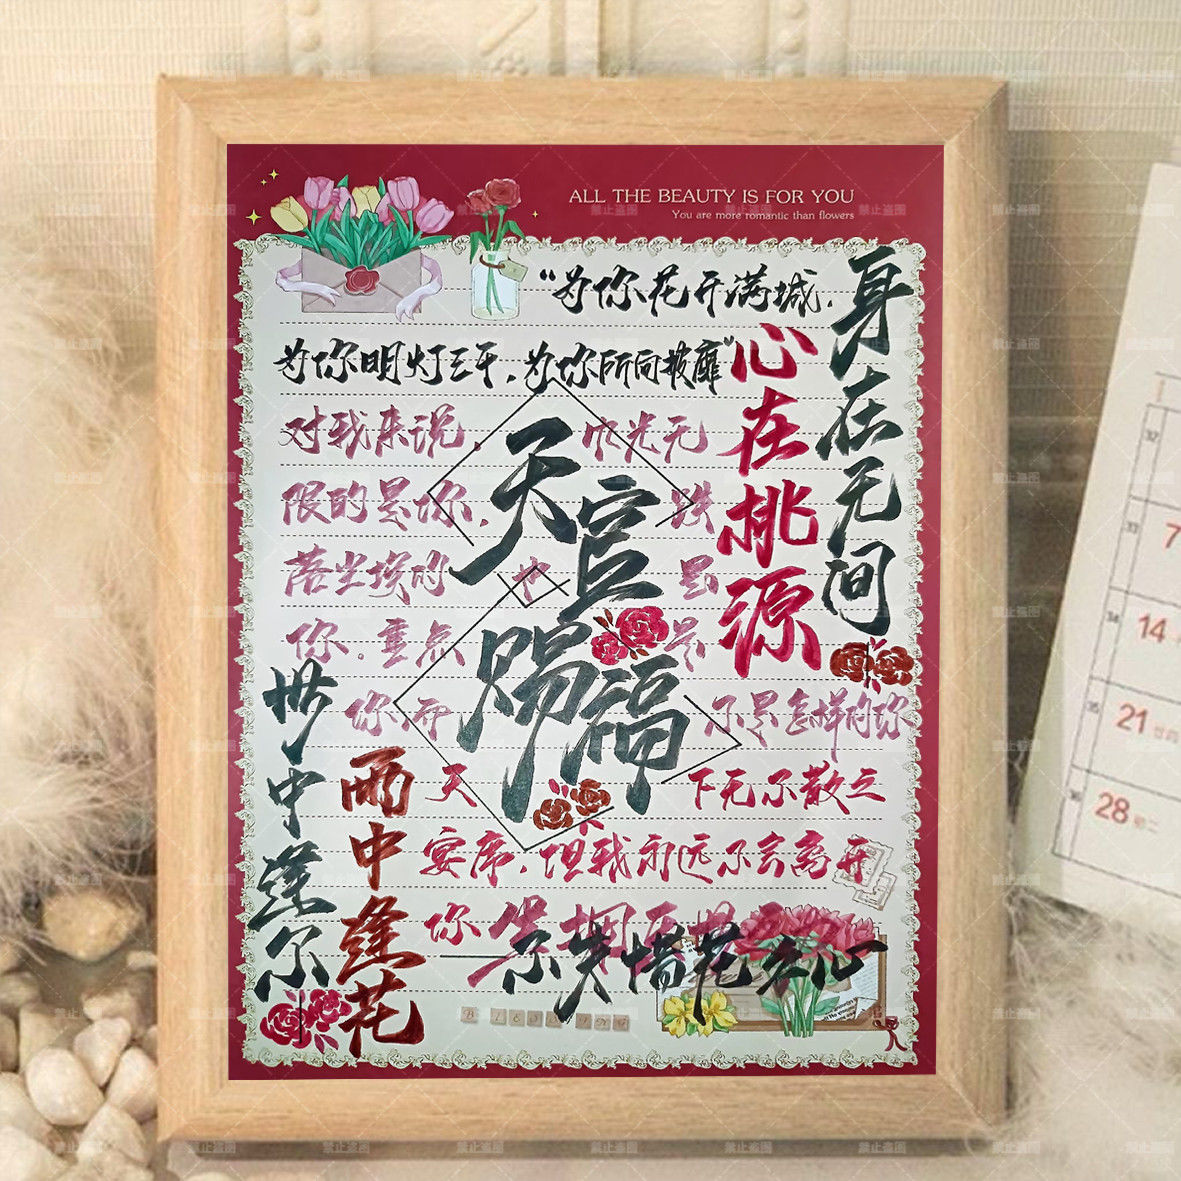 ALL THE BEAUTY IS FOR YOU
You are more romantic than flowers
“为你花开满城,
为你明灯三千,为你所向披靡”
身在无间
心在桃源
对我来说,风光无
限的是你,跌
落尘埃的也是
你.重点是
你,而不是怎样的你
天官赐福
世中逢尔
雨中逢花
天下无不散之
宴席,但我永远不会离开
你
尔失惜花会心
7
14
21
28
禁止盗图